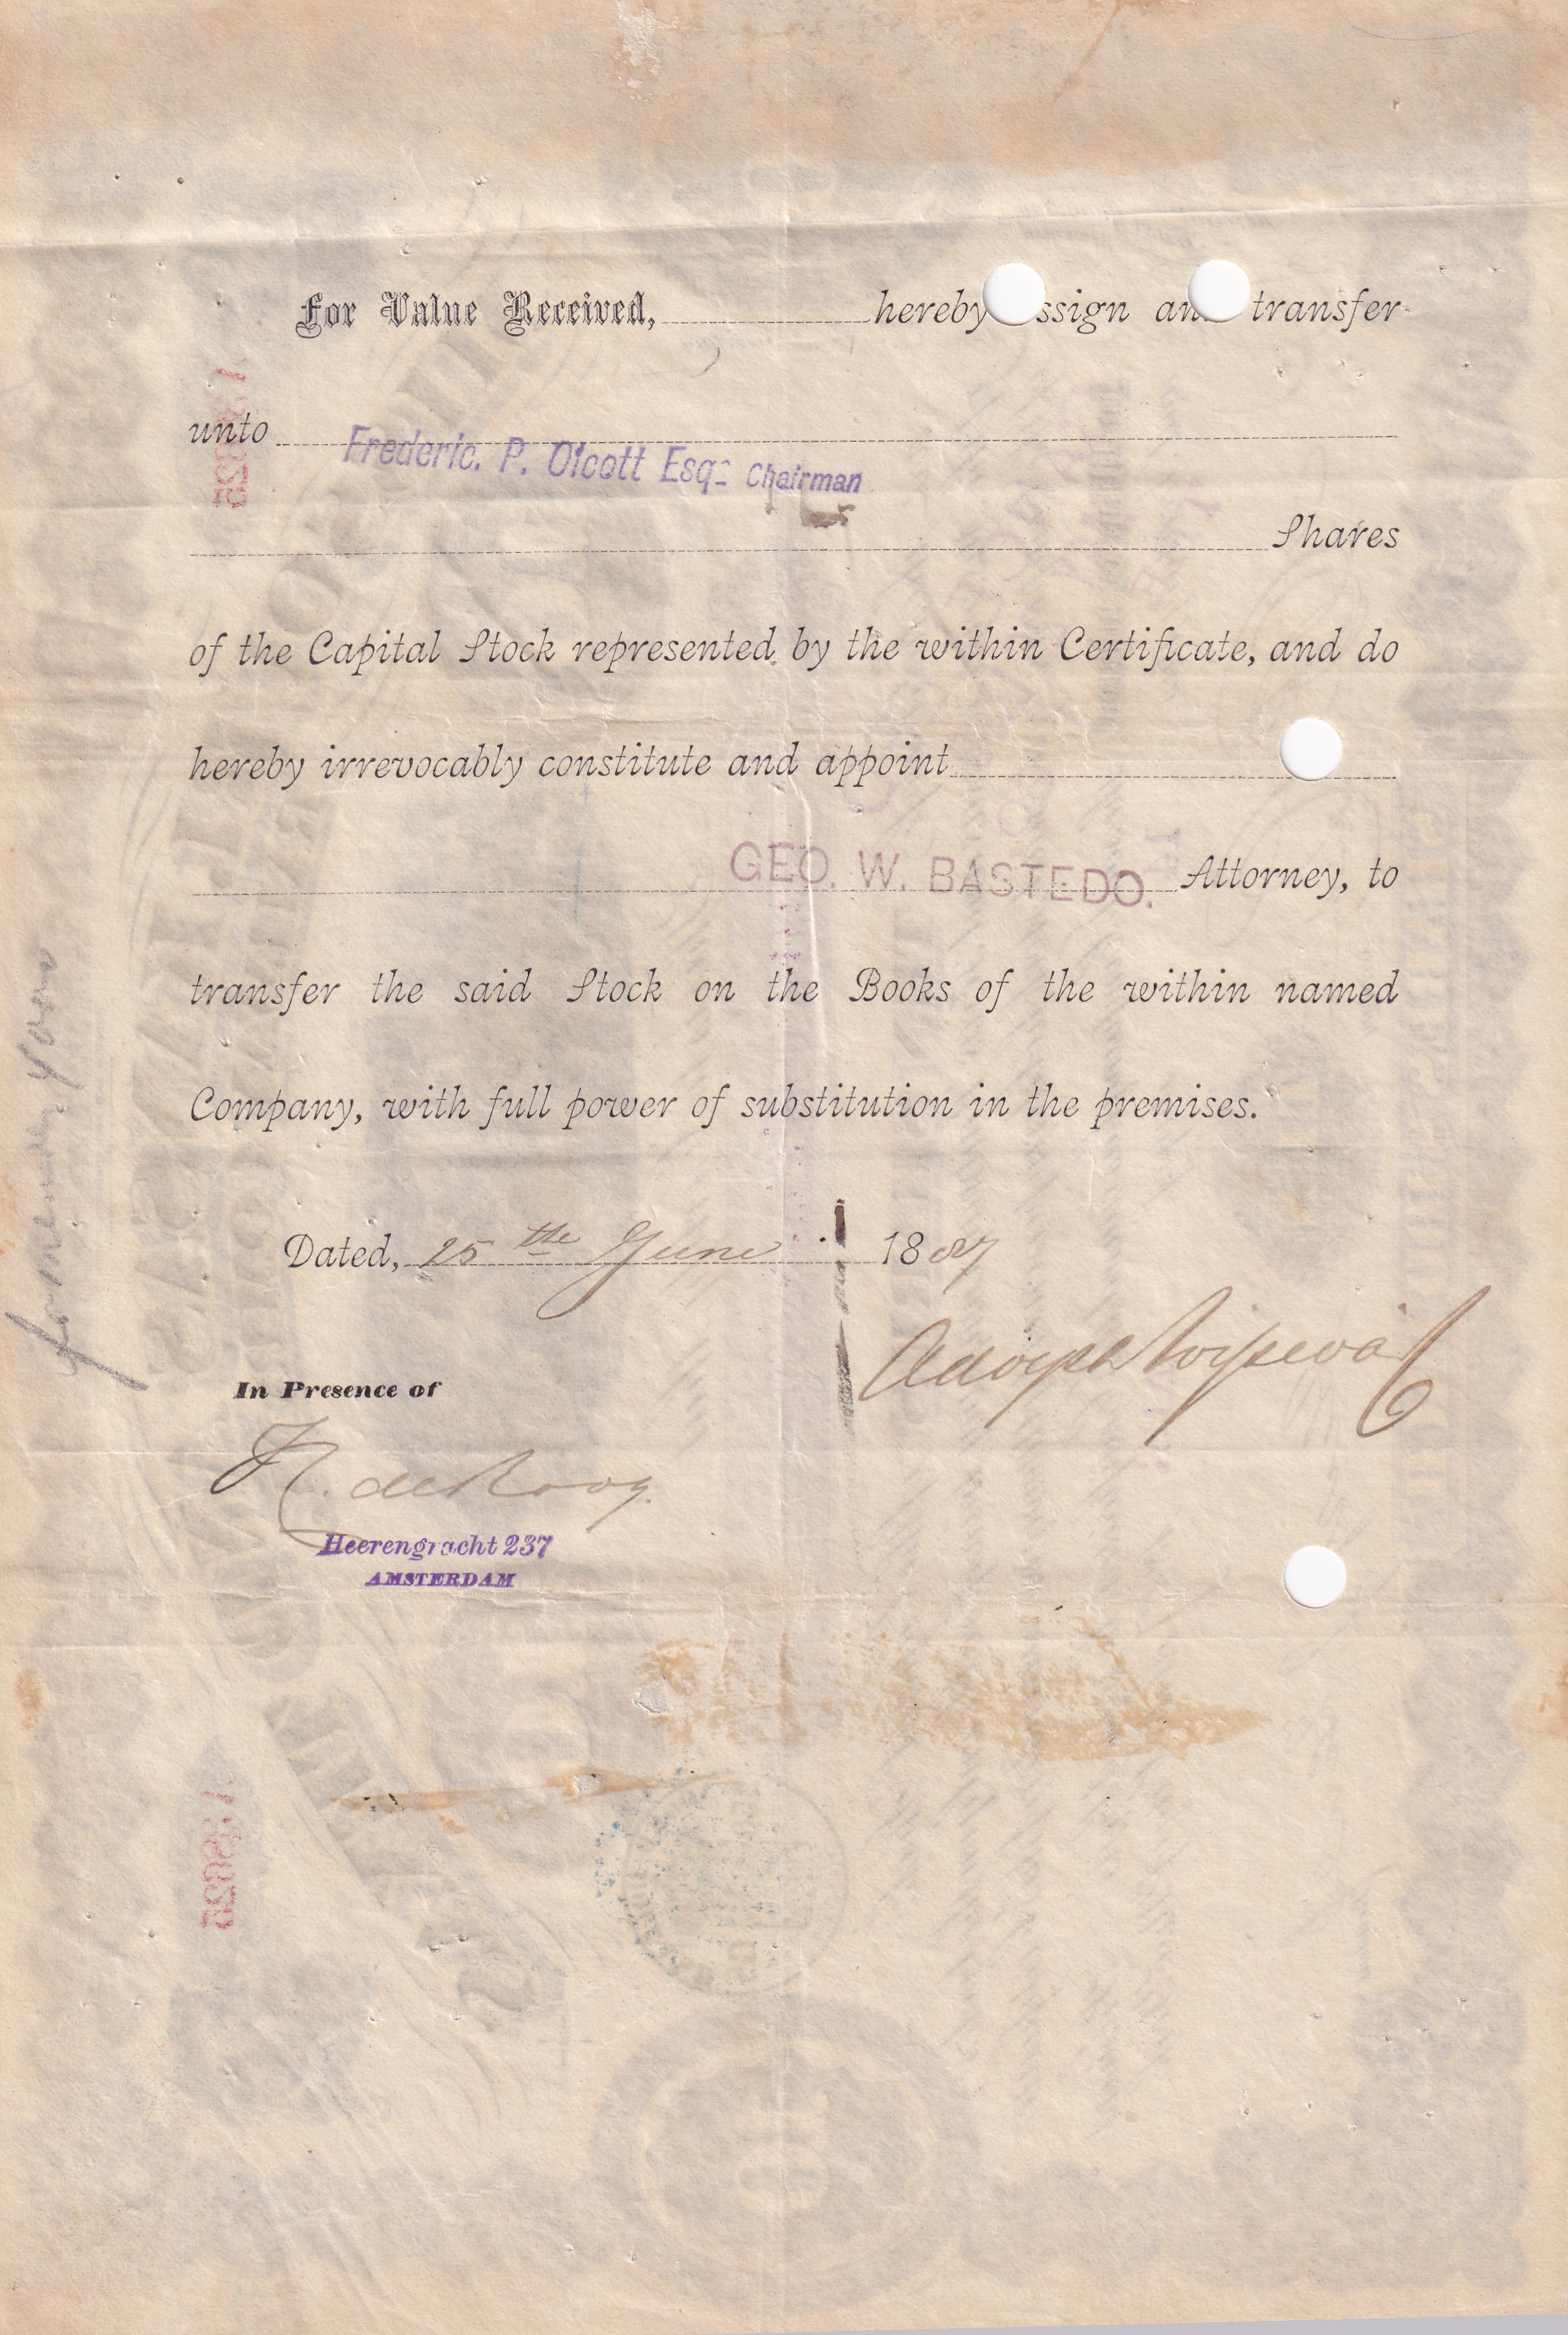 For Value Received, hereby ssign an transfer
unto Frederic. P. Olcott Esq. Chairman
Shares
of the Capital Stock represented by the within Certificate, and do
hereby irrevocably constitute and appoint
GEO. W. BASTEDO. Attorney, to
transfer the said Stock on the Books of the within named
Company, with full power of substitution in the premises.
Dated, 25th June 1887
Adolph
In Presence of
de Rooy.
Heerengracht 237
AMSTERDAM